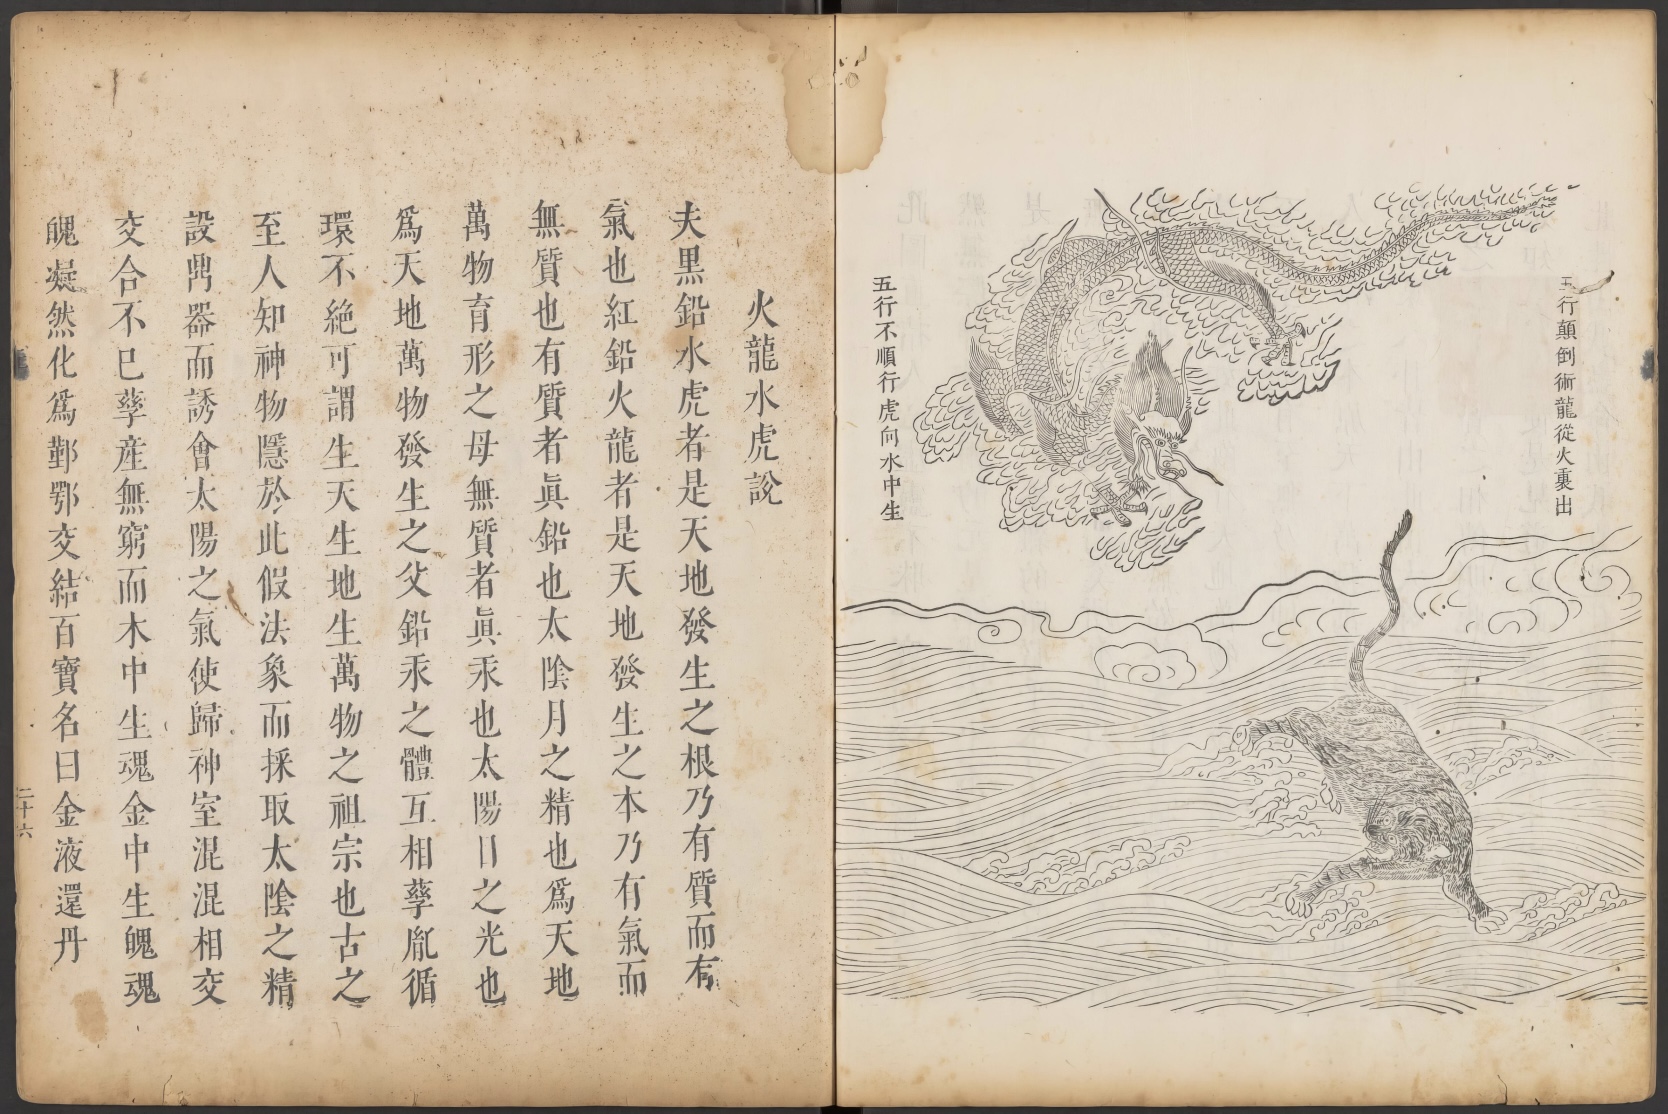 五行顛倒術龍從火裏出
五行不順行虎向水中生
火龍水虎說
夫黑鉛水虎者是天地發生之根乃有質而有
氣也紅鉛火龍者是天地發生之本乃有氣而
無質也有質者眞鉛也太陰月之精也爲天地
萬物育形之母無質者眞汞也太陽日之光也
爲天地萬物發生之父鉛汞之體互相孳胤循
環不絶可謂生天生地生萬物之祖宗也古之
至人知神物隱於此假法象而採取太陰之精
設鼎器而誘會太陽之氣使歸神室混混相交
交合不巳孳産無窮而木中生魂金中生魄魂
魄凝然化爲鄞鄂交結百寶名曰金液還丹
二十六